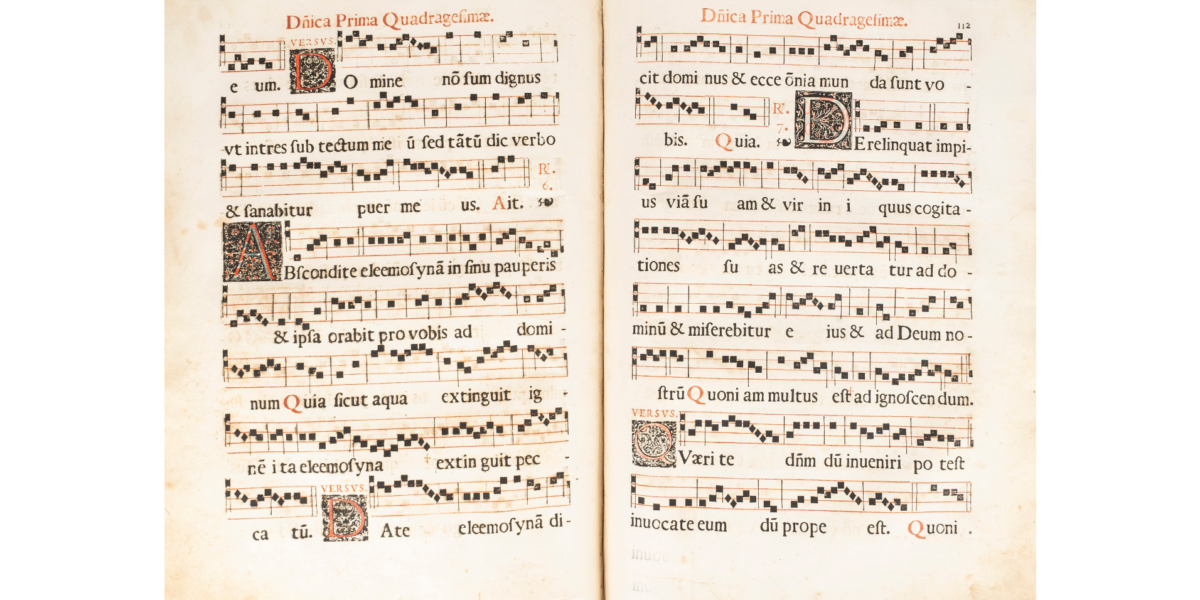 Dñica Prima Quadragesimæ.
VERSVS.
e um. DO mine nõ sum dignus
vt intres sub tectum me ũ sed tãtũ dic verbo
& sanabitur puer me us. Ait. R̃. 6.
ABscondite eleemosynã in sinu pauperis
& ipsa orabit pro vobis ad domi -
num Quia sicut aqua extinguit ig -
nẽ i ta eleemosyna † extin guit pec -
VERSVS.
ca tũ. DAte eleemosynã di -
Dñica Prima Quadragesimæ.
112
cit domi nus & ecce õnia mun da sunt vo -
bis. Quia. R̃. 7. DErelinquat impi -
us viã su am & vir in i quus cogita -
tiones su as & re uerta tur ad do -
minũ & miserebitur e ius & ad Deum no -
strũ Quoni am multus est † ad ignoscen dum.
VERSVS.
QVæri te dñm dũ inueniri po test
inuocate eum dũ prope est. Quoni .